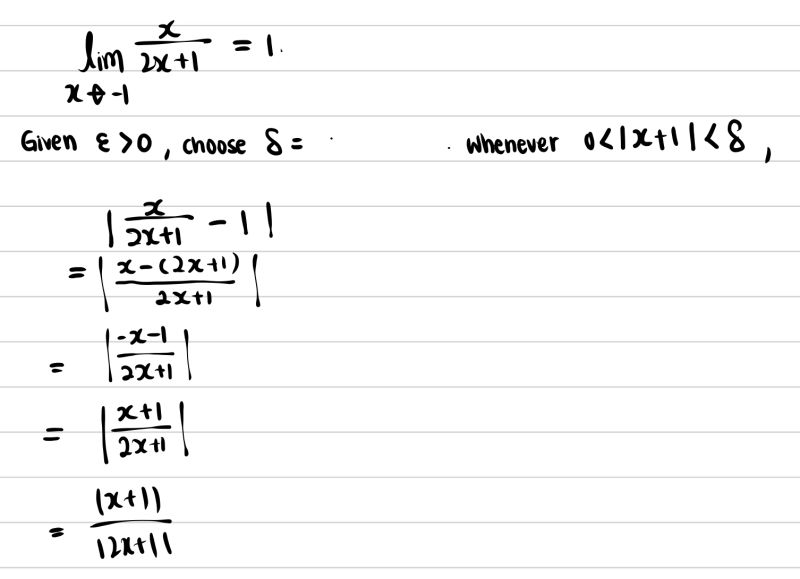 lim x/(2x+1) = 1.
x→-1
Given ε>0, choose δ = . . whenever 0<|x+1|<δ,
|x/(2x+1) - 1|
= |(x-(2x+1))/(2x+1)|
= |(-x-1)/(2x+1)|
= |(x+1)/(2x+1)|
= |x+1|/|2x+1|